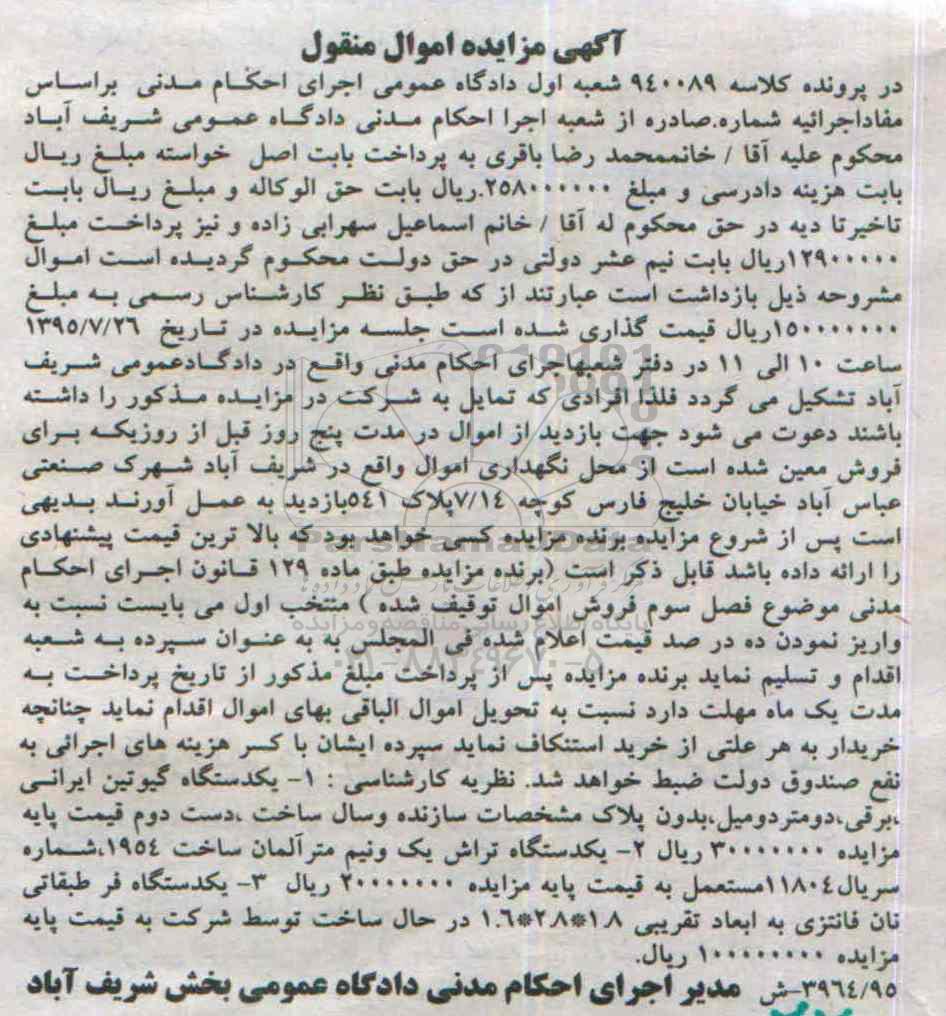 آگهی مزایده اموال منقول
در پرونده کلاسه ۹۴۰۰۸۹ شعبه اول دادگاه عمومی اجرای احکام مدنی براساس
مفاداجرائیه شماره.صادره از شعبه اجرا احکام مدنی دادگاه عمومی شریف آباد
محکوم علیه آقا / خانممحمد رضا باقری به پرداخت بابت اصل خواسته مبلغ ریال
بابت هزینه دادرسی و مبلغ ۲۵۸۰۰۰۰۰۰.ریال بابت حق الوکاله و مبلغ ریال بابت
تاخیرتا دیه در حق محکوم له آقا / خانم اسماعیل سهرابی زاده و نیز پرداخت مبلغ
۱۲۹۰۰۰۰۰ریال بابت نیم عشر دولتی در حق دولت محکوم گردیده است اموال
مشروحه ذیل بازداشت است عبارتند از که طبق نظر کارشناس رسمی به مبلغ
۱۵۰۰۰۰۰۰۰۰ریال قیمت گذاری شده است جلسه مزایده در تاریخ ۱۳۹۵/۷/۲۶
ساعت ۱۰ الی ۱۱ در دفتر شعبهاجرای احکام مدنی واقع در دادگادعمومی شریف
آباد تشکیل می گردد فلذا افرادی که تمایل به شرکت در مزایده مذکور را داشته
باشند دعوت می شود جهت بازدید از اموال در مدت پنج روز قبل از روزیکه برای
فروش معین شده است از محل نگهداری اموال واقع در شریف آباد شهرک صنعتی
عباس آباد خیابان خلیج فارس کوچه ۷/۱۴پلاک ۵۴۱بازدید به عمل آورند بدیهی
است پس از شروع مزایده برنده مزایده کسی خواهد بود که بالا ترین قیمت پیشنهادی
را ارائه داده باشد قابل ذکر است (برنده مزایده طبق ماده ۱۲۹ قانون اجرای احکام
مدنی موضوع فصل سوم فروش اموال توقیف شده ) منتخب اول می بایست نسبت به
واریز نمودن ده در صد قیمت اعلام شده فی المجلس به به عنوان سپرده به شعبه
اقدام و تسلیم نماید برنده مزایده پس از پرداخت مبلغ مذکور از تاریخ پرداخت به
مدت یک ماه مهلت دارد نسبت به تحویل اموال الباقی بهای اموال اقدام نماید چنانچه
خریدار به هر علتی از خرید استنکاف نماید سپرده ایشان با کسر هزینه های اجرائی به
نفع صندوق دولت ضبط خواهد شد. نظریه کارشناسی : ۱- یکدستگاه گیوتین ایرانی
،برقی،دومتردومیل،بدون پلاک مشخصات سازنده وسال ساخت ،دست دوم قیمت پایه
مزایده ۳۰۰۰۰۰۰۰۰ ریال ۲- یکدستگاه تراش یک ونیم مترآلمان ساخت ۱۹۵۴،شماره
سریال۱۱۸۰۴مستعمل به قیمت پایه مزایده ۲۰۰۰۰۰۰۰۰ ریال ۳- یکدستگاه فر طبقاتی
نان فانتزی به ابعاد تقریبی ۱.۸*۲.۸*۱.۶ در حال ساخت توسط شرکت به قیمت پایه
مزایده ۱۰۰۰۰۰۰۰۰۰ ریال.
۳۹۶۴/۹۵-ش مدیر اجرای احکام مدنی دادگاه عمومی بخش شریف آباد
ParsNamadData
پایگاه اطلاع رسانی مناقصه و مزایده
۰۲۱-۸۸۳۴۹۶۷۰-۵